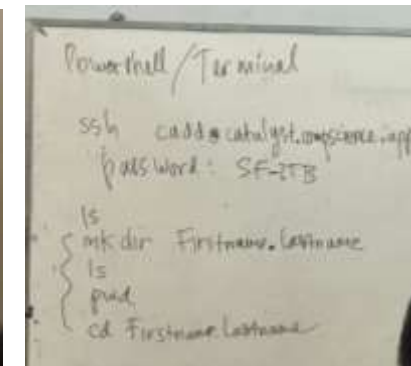 Powershell/Terminal
ssh cadd@catalyst.compscience.app
password:
ls
mkdir Firstname.Lastname
ls
pwd
cd Firstname.Lastname